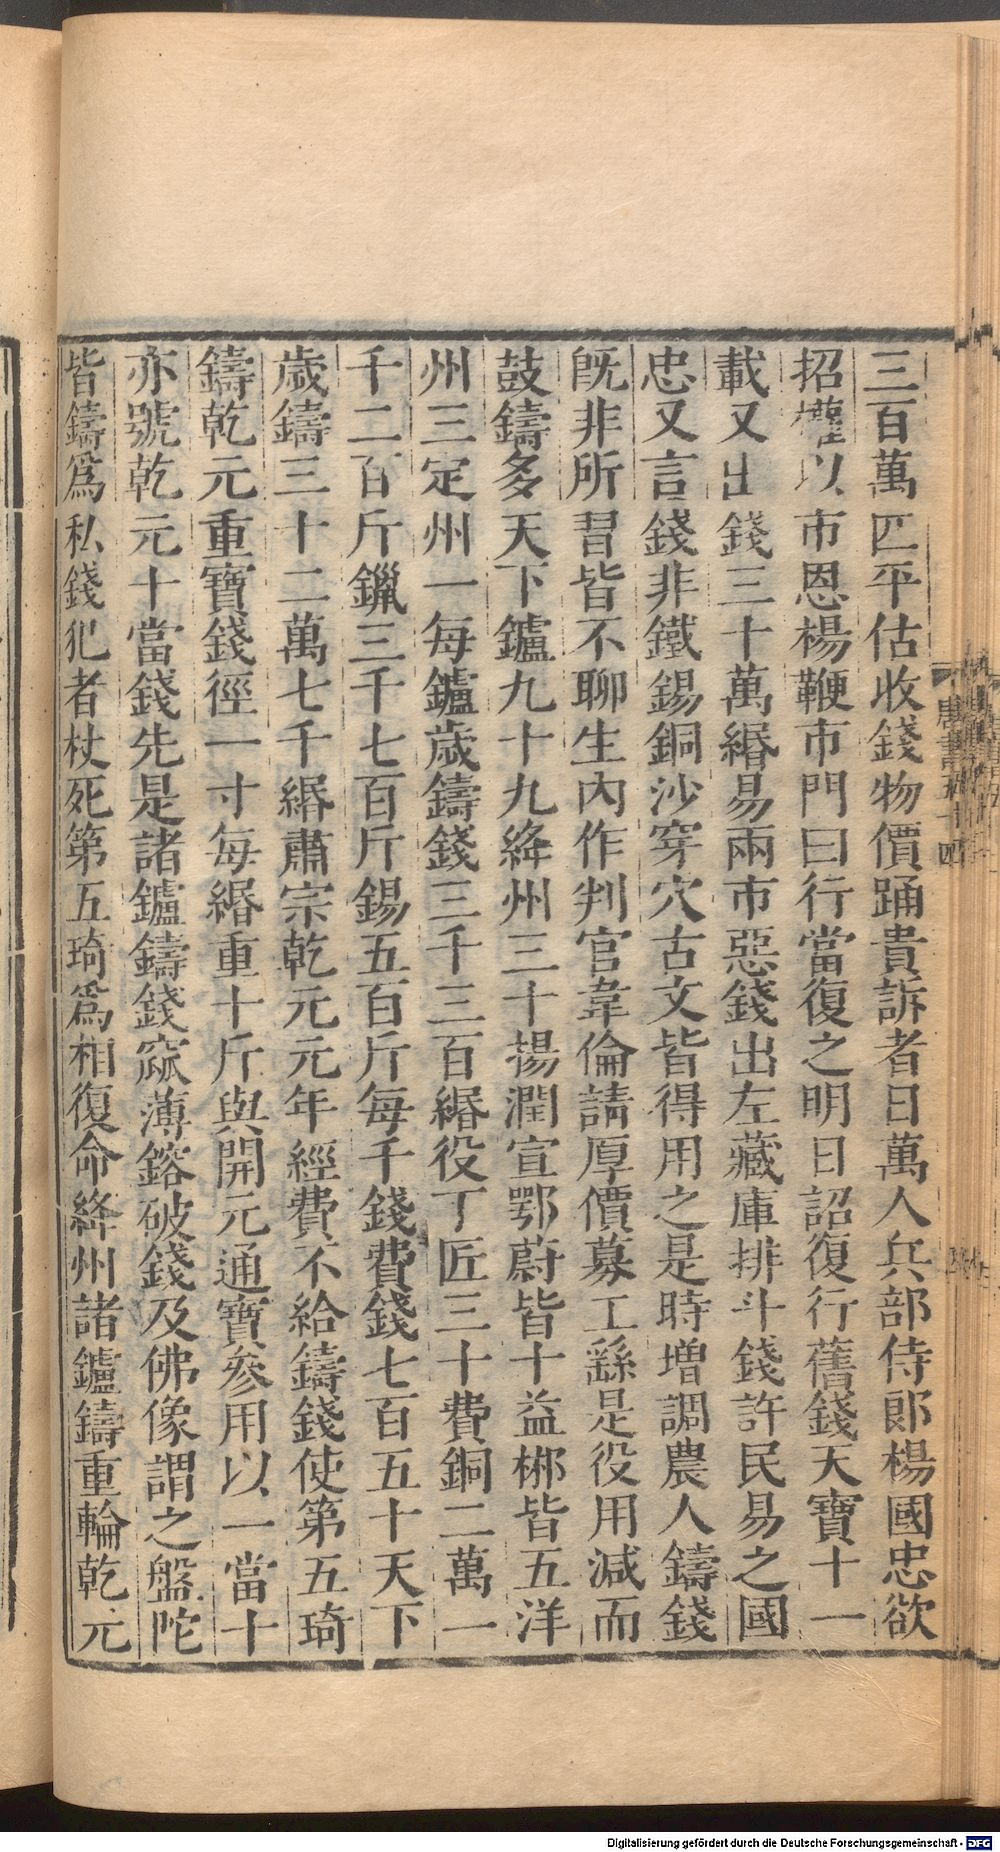 三百萬匹平估收錢物價踊貴訴者日萬人兵部侍郞楊國忠欲
招權以市恩楊鞭市門曰行當復之明日詔復行舊錢天寶十一
載又出錢三十萬緡易兩市惡錢出左藏庫排斗錢許民易之國
忠又言錢非鐵錫銅沙穿穴古文皆得用之是時增調農人鑄錢
旣非所習皆不聊生內作判官韋倫請厚價募工繇是役用減而
鼓鑄多天下鑪九十九絳州三十揚潤宣鄂蔚皆十益郴皆五洋
州三定州一每鑪歲鑄錢三千三百緡役丁匠三十費銅二萬一
千二百斤鑞三千七百斤錫五百斤每千錢費錢七百五十天下
歲鑄三十二萬七千緡肅宗乾元元年經費不給鑄錢使第五琦
鑄乾元重寶錢徑一寸每緡重十斤與開元通寶參用以一當十
亦號乾元十當錢先是諸鑪鑄錢窳薄鎔破錢及佛像謂之盤陀
皆鑄爲私錢犯者杖死第五琦爲相復命絳州諸鑪鑄重輪乾元
唐書五十四
Digitalisierung gefördert durch die Deutsche Forschungsgemeinschaft - DFG